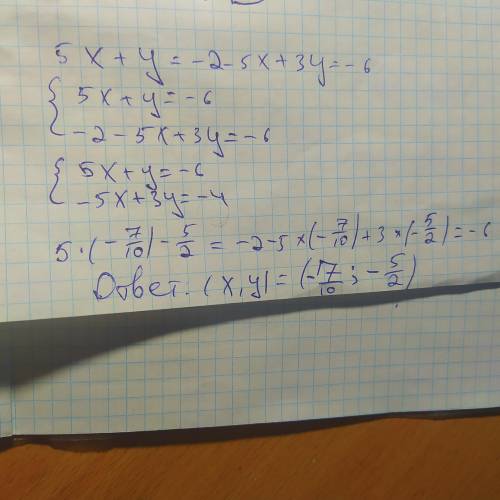 5x + y = -2-5x+3y=-6
{ 5x+y=-6
-2-5x+3y=-6
{ 5x+y=-6
-5x+3y=-4
5·(-7/10)-5/2 = -2-5×(-7/10)+3×(-5/2)=-6
Ответ. (x,y)=(-7/10;-5/2)